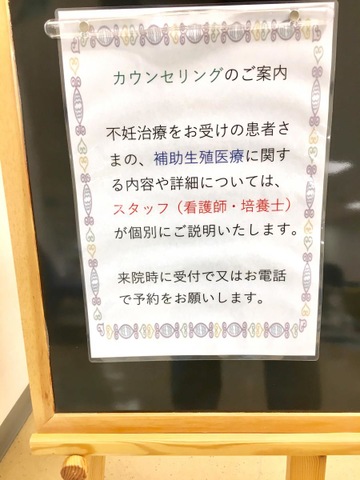 カウンセリングのご案内
不妊治療をお受けの患者さ
まの、補助生殖医療に関す
る内容や詳細については、
スタッフ（看護師・培養士）
が個別にご説明いたします。
来院時に受付で又はお電話
で予約をお願いします。